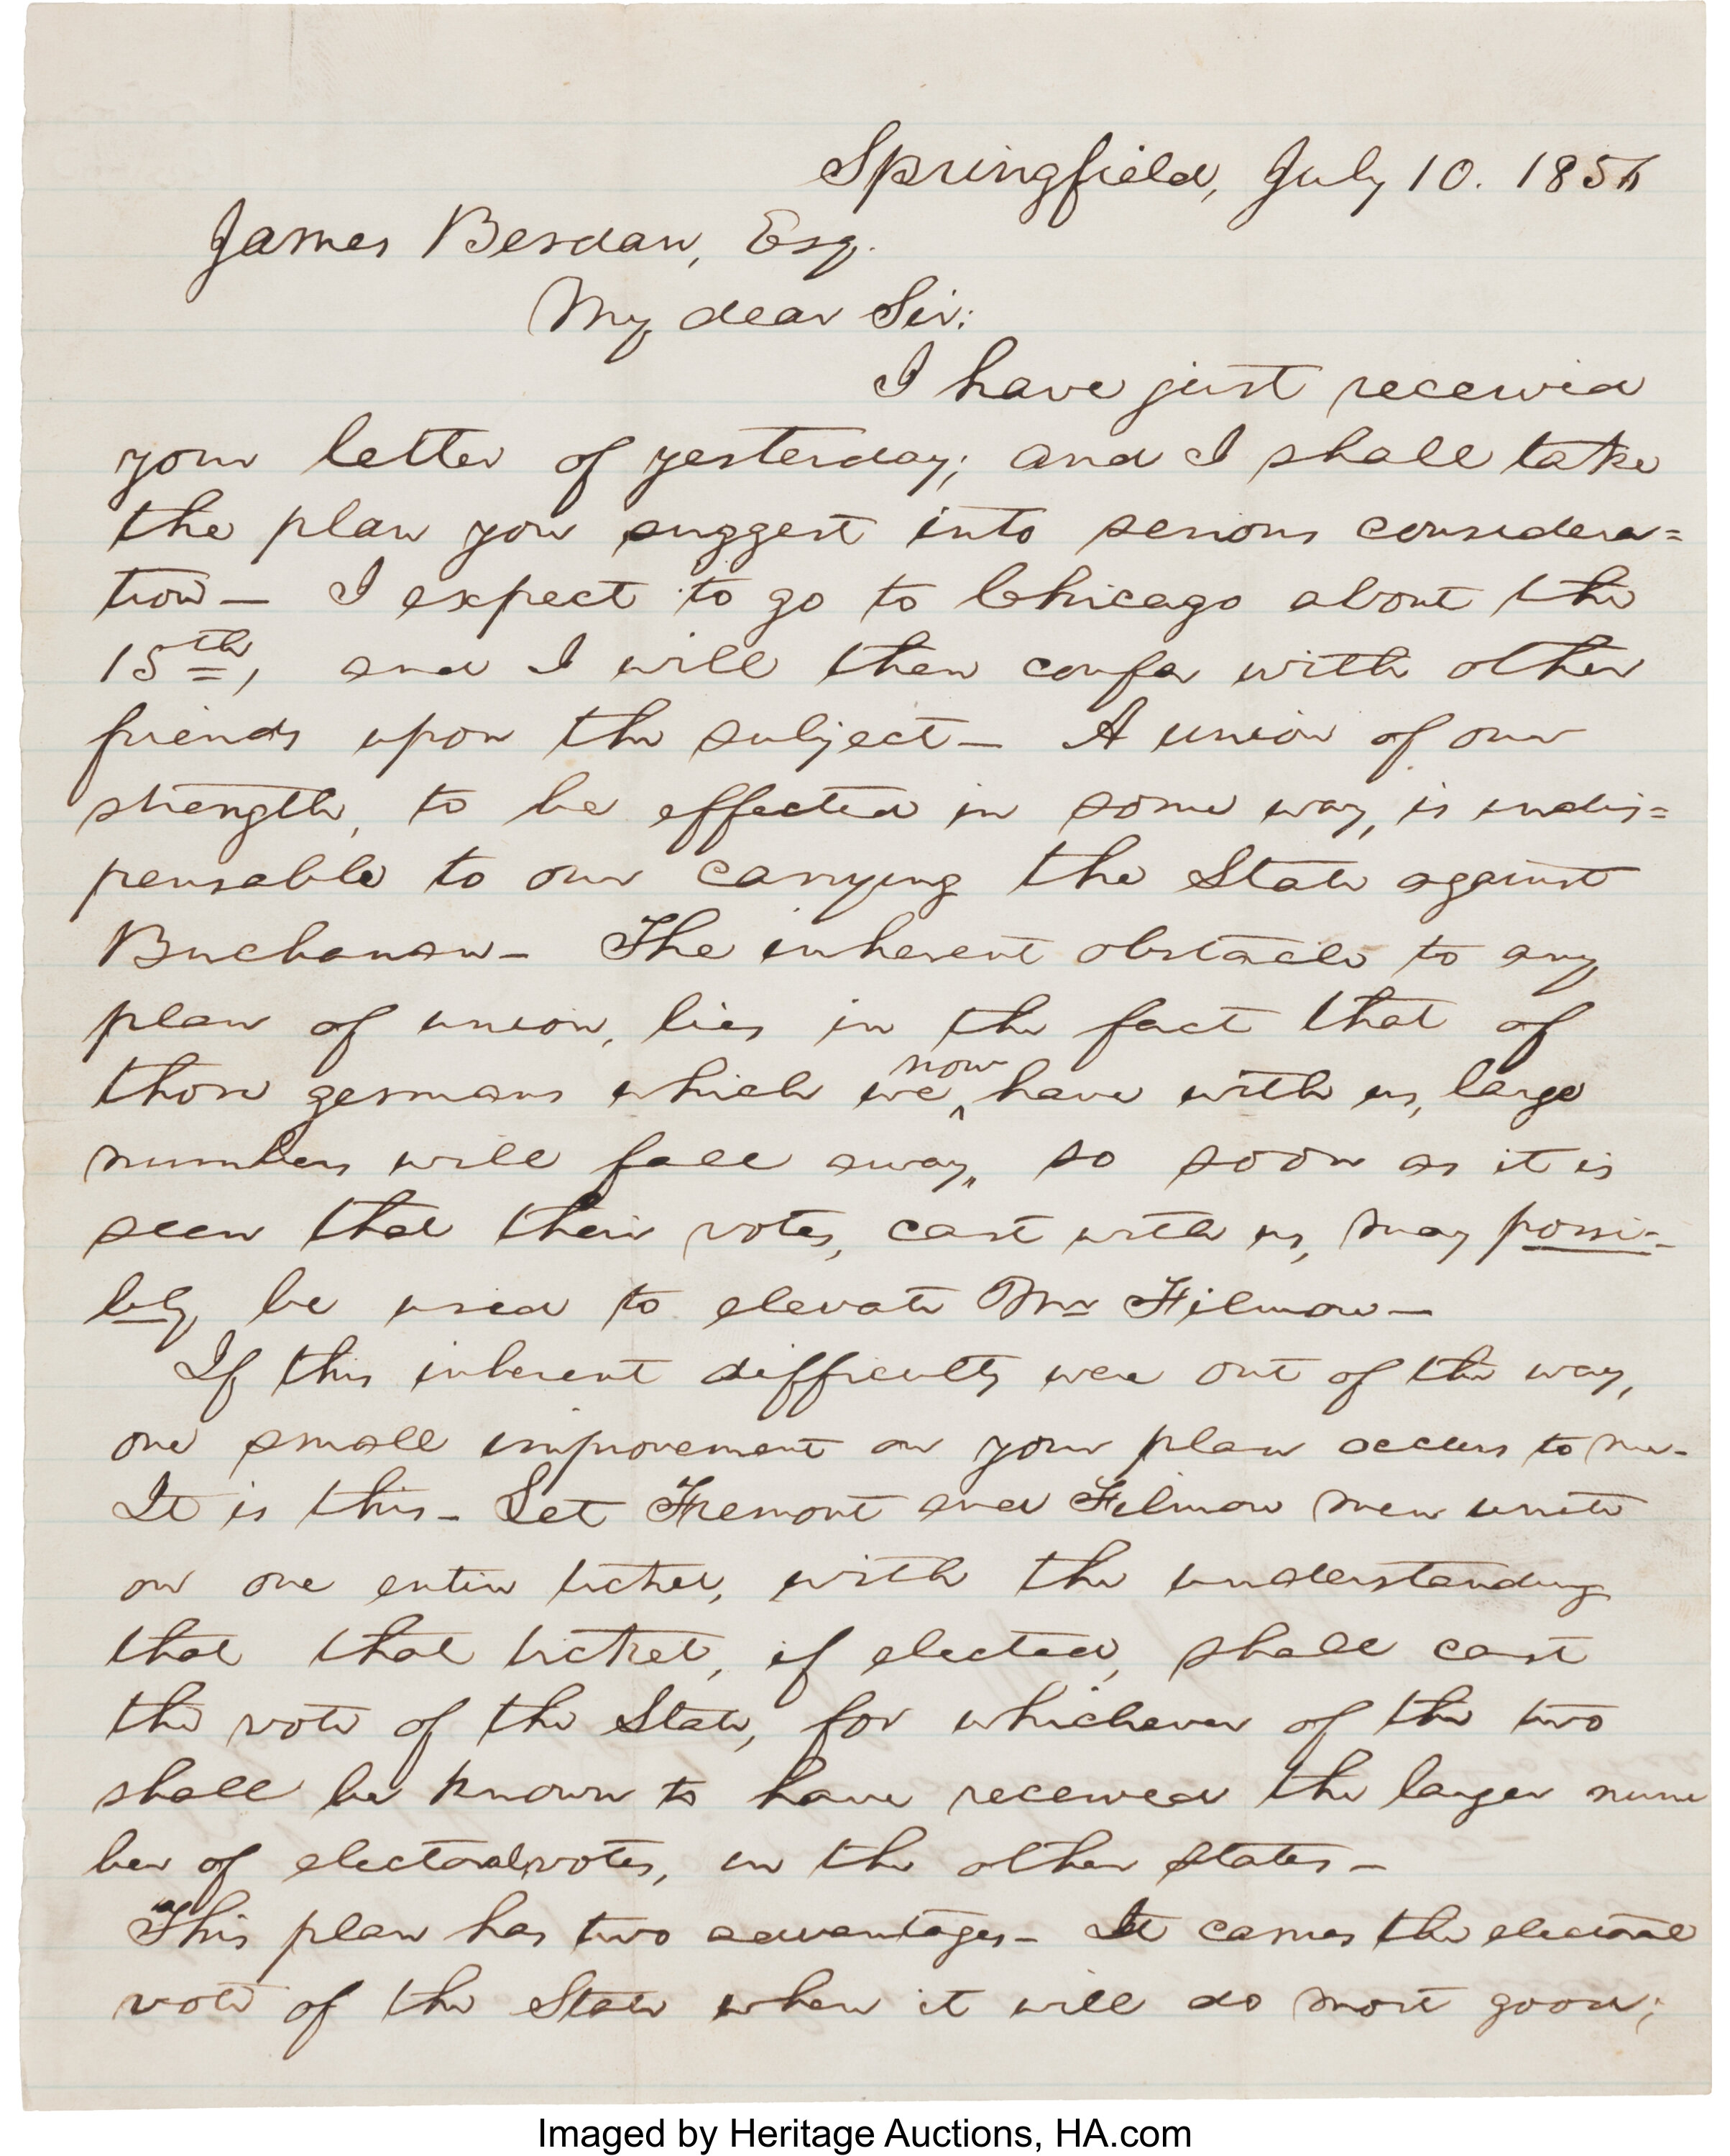 Springfield, July 10. 1856
James Berdan, Esq.
My dear Sir:
I have just received
your letter of yesterday; and I shall take
the plan you suggest into serious considera=
tion— I expect to go to Chicago about the
15th, and I will then confer with other
friends upon the subject— A union of our
strength, to be effected in some way, is indis=
pensable to our carrying the State against
Buchanan— The inherent obstacle to any
plan of union, lies in the fact that of
those germans which we ^now have with us, large
numbers will fall away, so soon as it is
seen that their votes, cast with us, may possi-
bly be used to elevate Mr Filmore—
If this inherent difficulty were out of the way,
one small improvement on your plan occurs to me-
It is this— Let Fremont and Filmore men unite
on one entire ticket, with the understanding
that that ticket, if elected, shall cast
the vote of the State, for whichever of the two
shall be known to have received the larger num
ber of electoral votes, in the other states—
This plan has two advantages— It carries the electoral
vote of the State where it will do most good;
Imaged by Heritage Auctions, HA.com